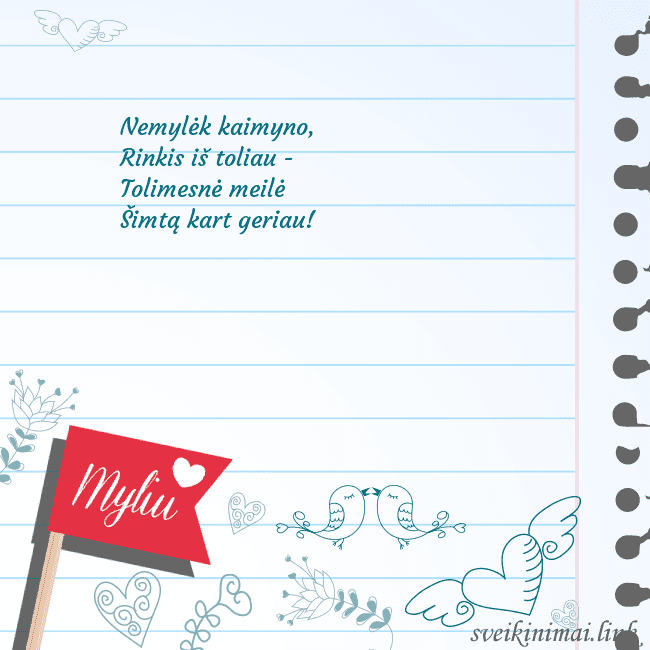 Nemylėk kaimyno,
Rinkis iš toliau -
Tolimesnė meilė
Šimtą kart geriau!
Myliu
sveikinimai.link